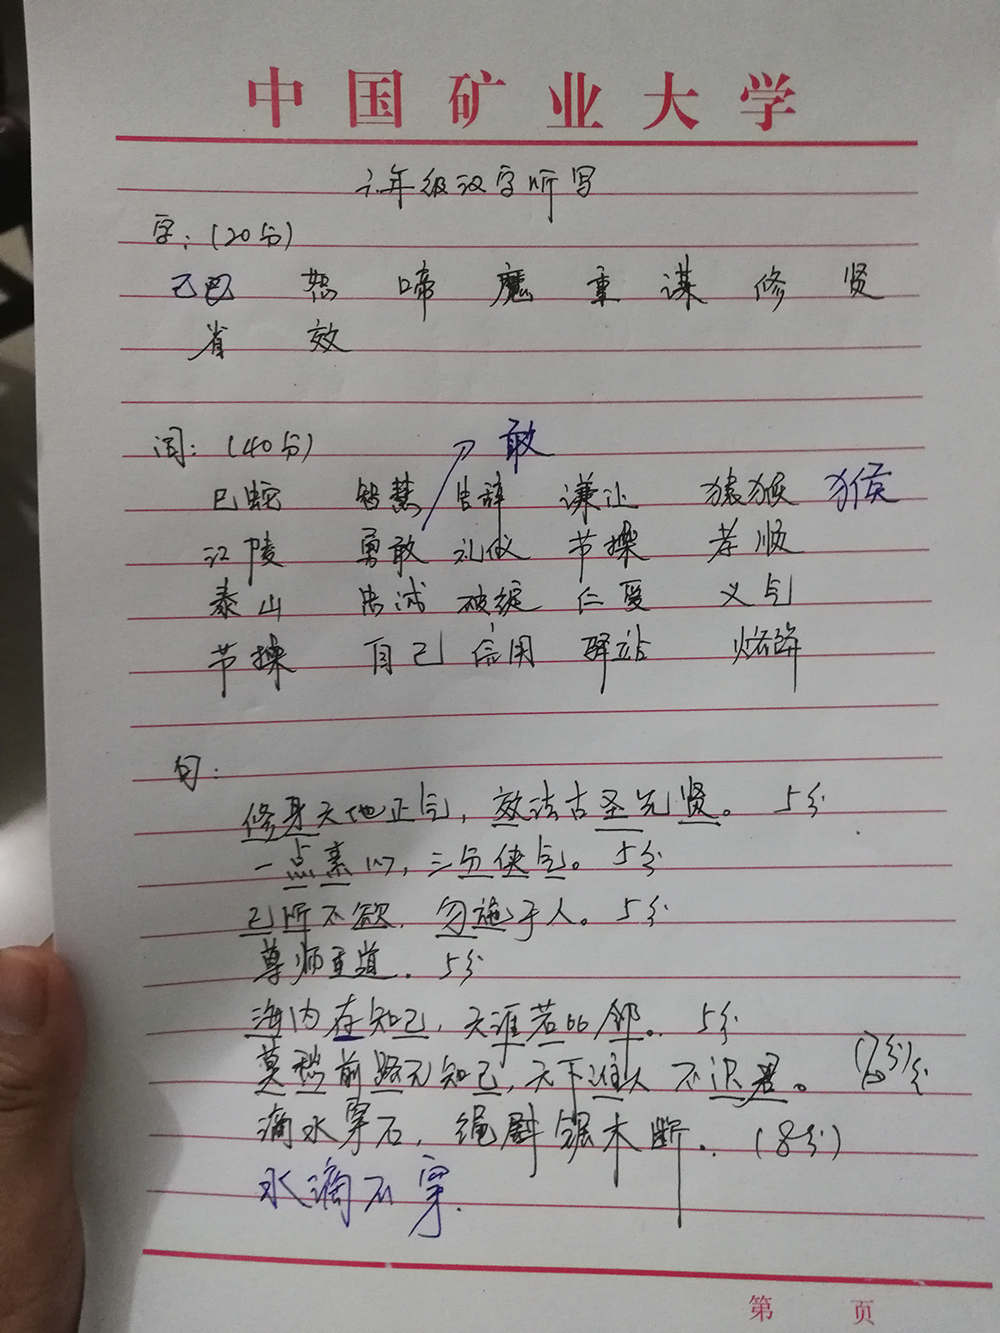 中国矿业大学
六年级汉字听写
字：(20分)
己巴 愁 啼 魔 重 谋 修 贤
省 效
词：(40分) 敢
巴蛇 智慧 告辞 谦让 猿猴 猴
江陵 勇敢 礼仪 节操 孝顺
泰山 忠诚 破绽 仁爱 义气
节操 自己 信用 驿站 烙饼
句：
修身天地正气，效法古圣先贤。 5分
一点素心，三分侠气。 5分
己所不欲，勿施于人。 5分
尊师重道。 5分
海内存知己，天涯若比邻。 5分
莫愁前路无知己，天下谁人不识君。 (7分)分
滴水穿石，绳锯木断。 (8分)
水滴石穿.
第 页